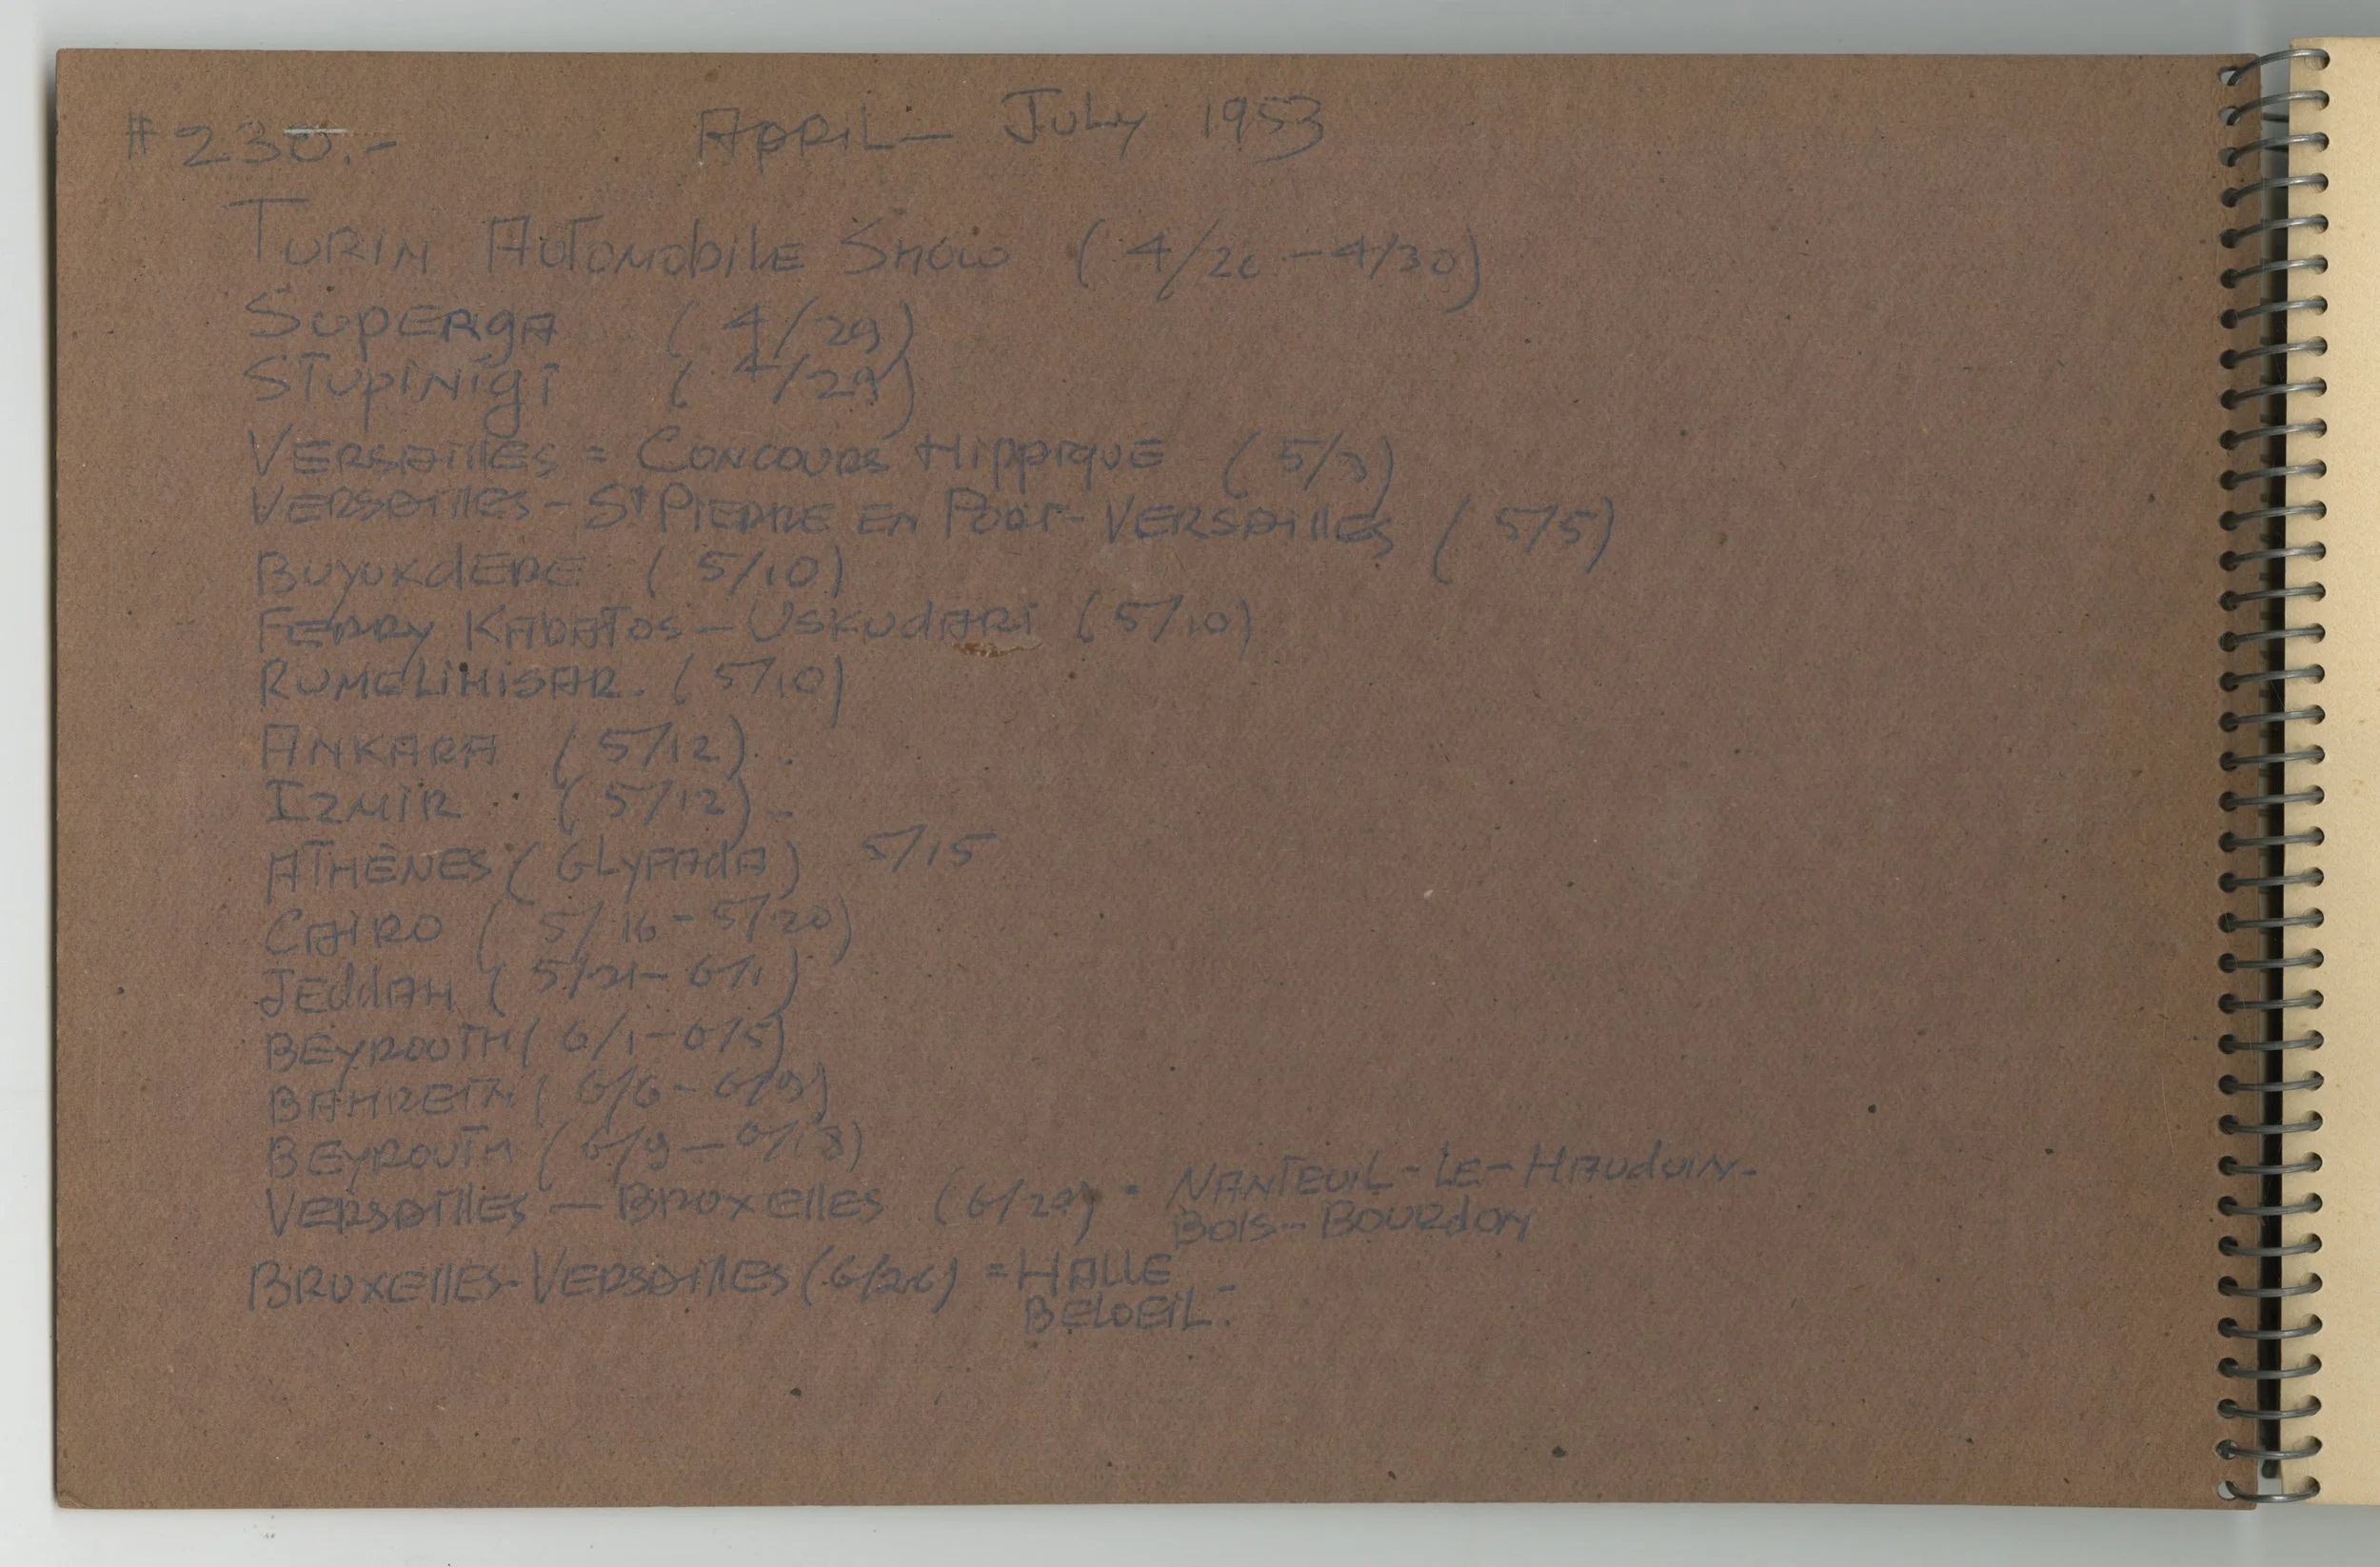 #230.- April - July 1953
Turin Automobile Show (4/26 - 4/30)
Superga (4/29)
Stupinigi (4/29)
Versailles = Concours Hippique (5/3)
Versailles - St Pierre en Port - Versailles (5/5)
Buyukdere (5/10)
Ferry Kabatos - Uskudari (5/10)
Rumelihisar. (5/10)
Ankara (5/12).
Izmir (5/12) -
Athènes (Glyfada) 5/15
Cairo (5/16 - 5/20)
Jeddah (5/21 - 6/1)
Beyrouth (6/1 - 6/5)
Bahrein (6/6 - 6/9)
Beyrouth (6/9 - 6/18)
Versailles - Bruxelles = Nanteuil-Le-Hauduin-
Bois-Bourdon
Bruxelles-Versailles (6/26) = Halle -
Beloeil.